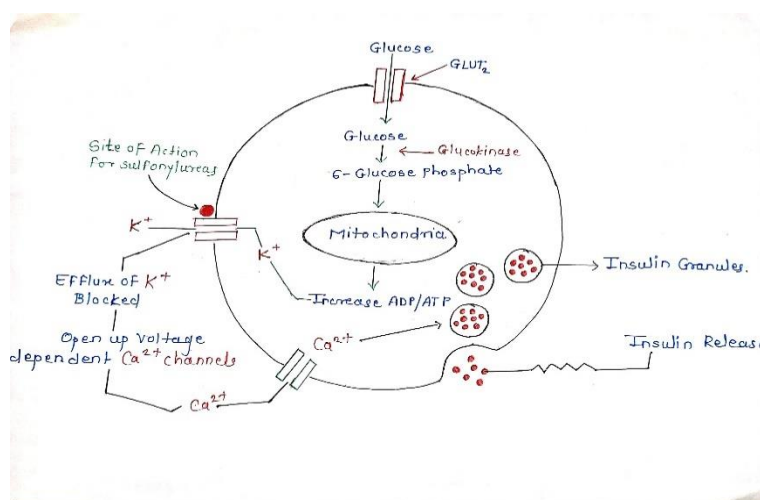 Glucose
GLUT₂
Glucose
Glucokinase
6-Glucose phosphate
Mitochondria
Increase ADP/ATP
Site of Action
For sulfonylureas
K⁺
K⁺
Efflux of K⁺
Blocked
Open up voltage
dependent Ca²⁺ channels
Ca²⁺
Ca²⁺
Insulin Granules.
Insulin Releas